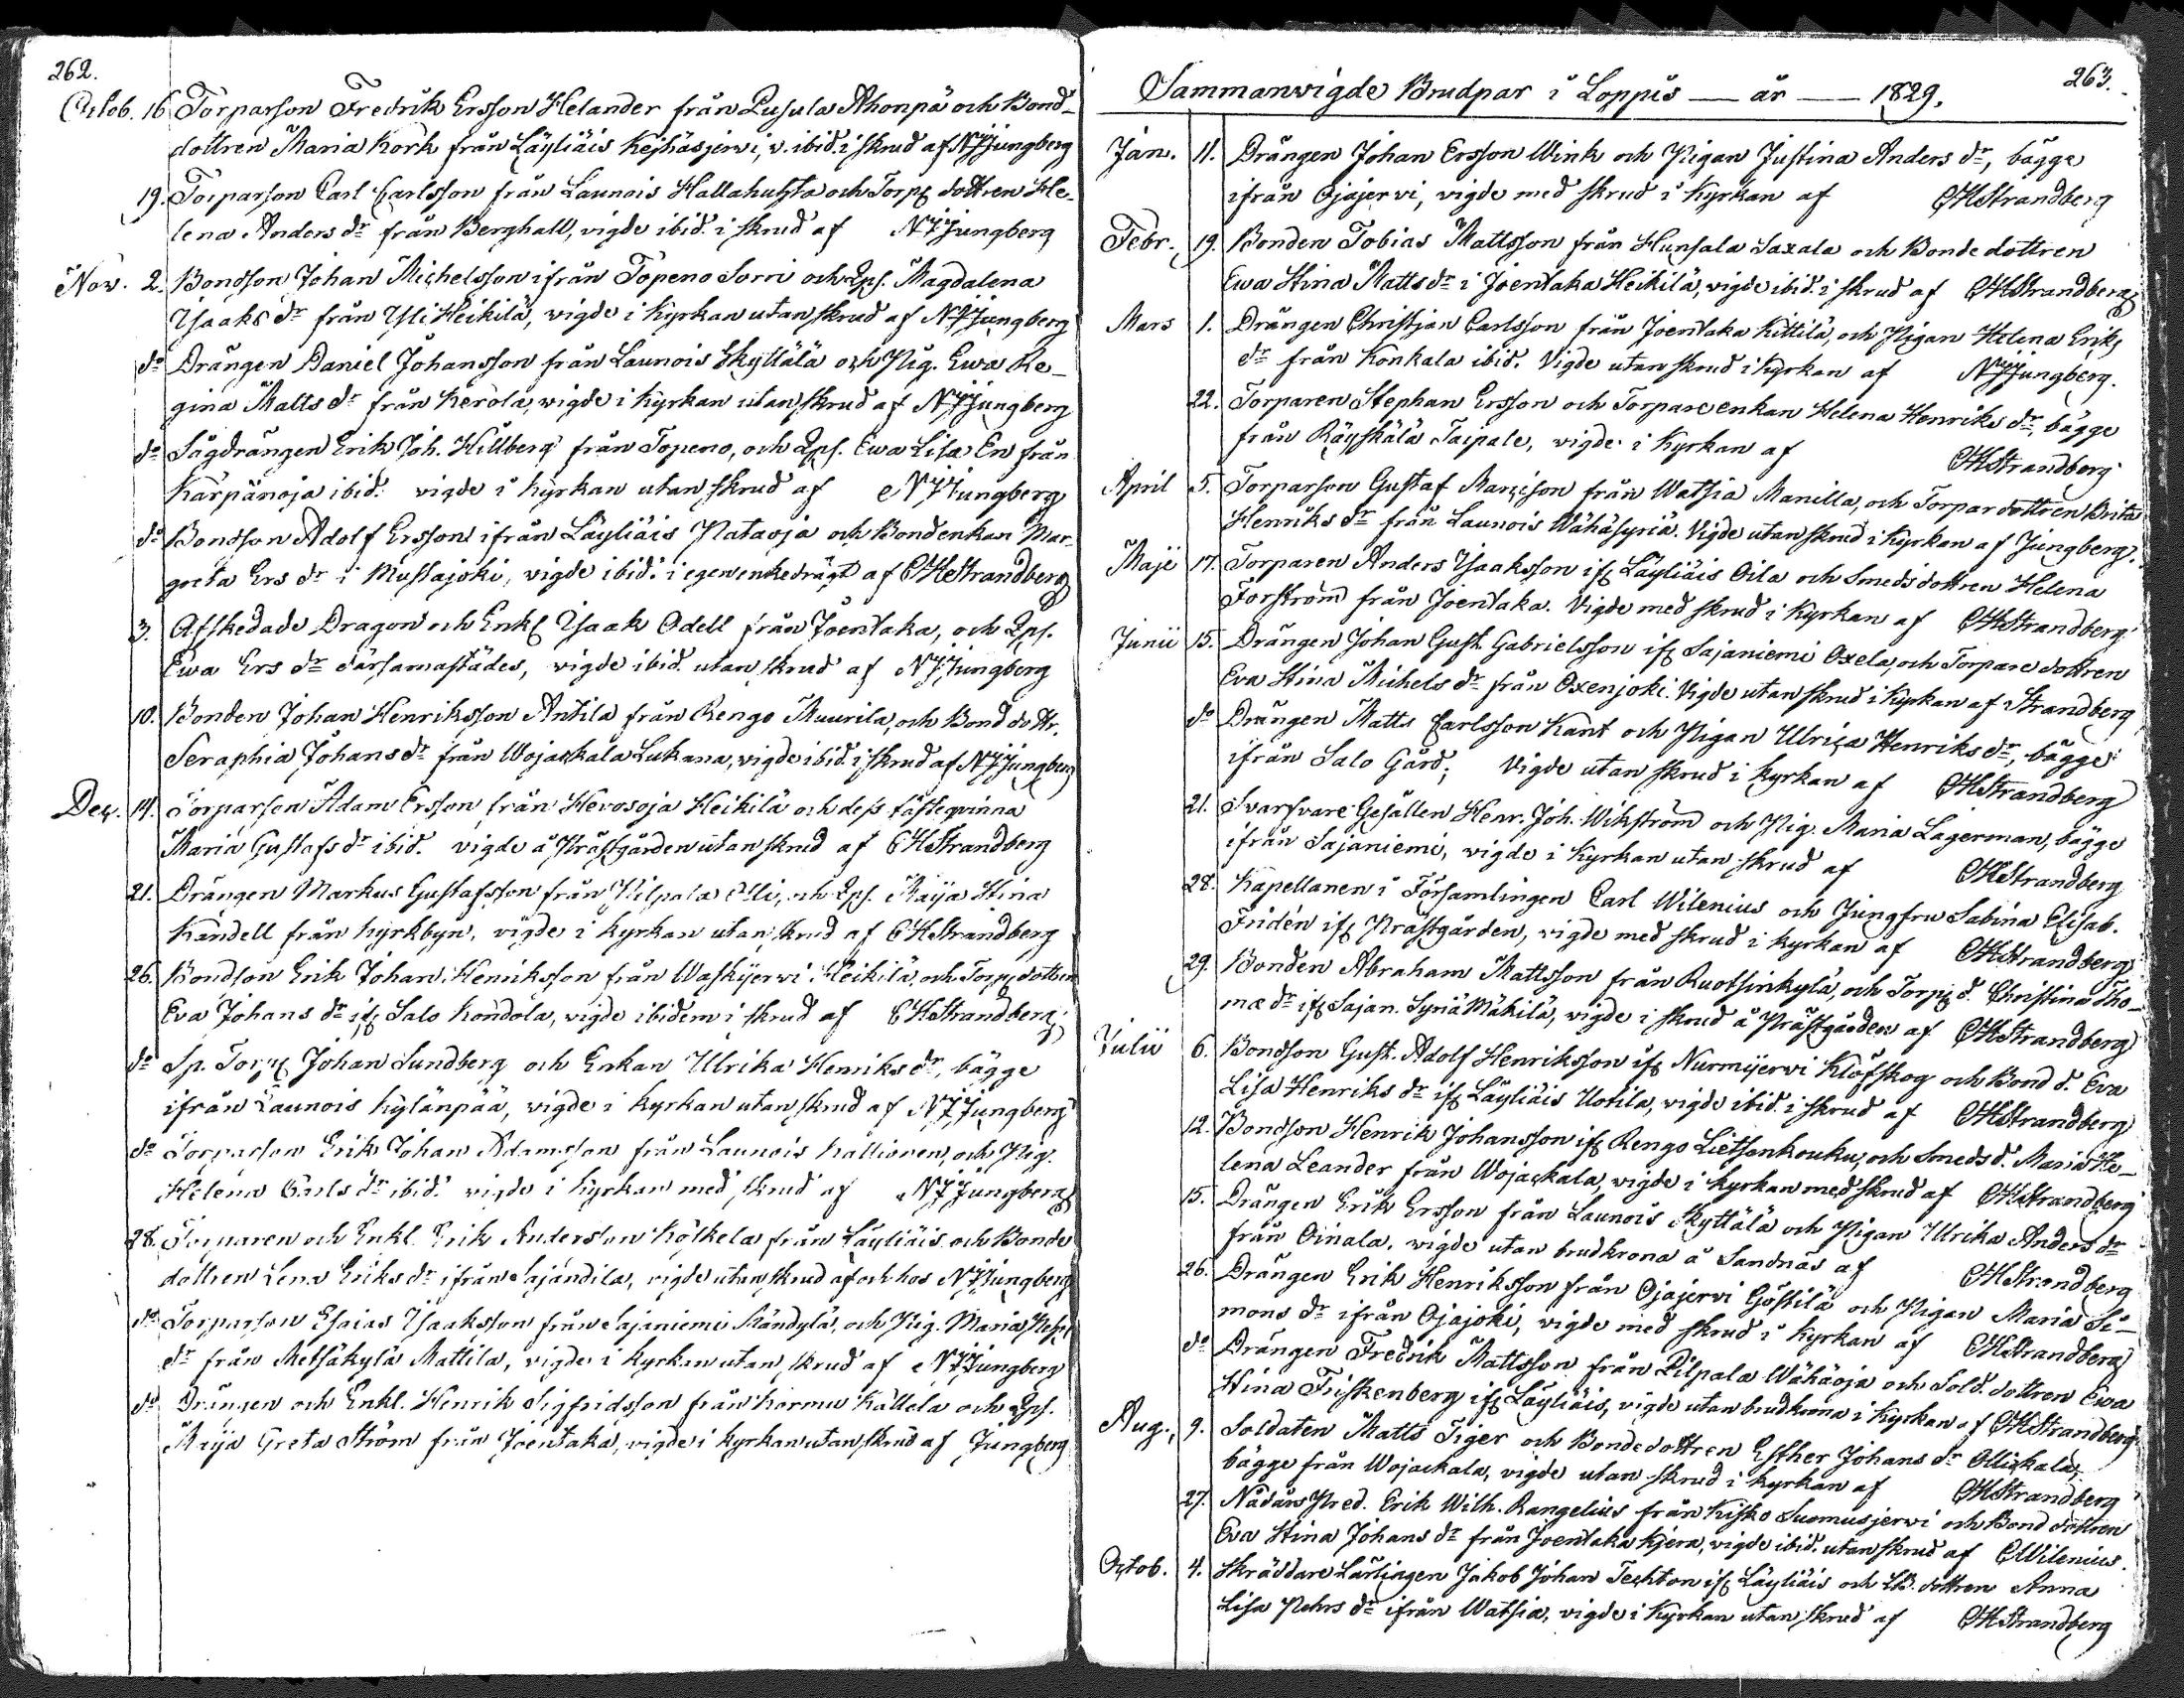 262.
Octob. 16 Torparson Fredrik Ersson Helander från Lusula Ahonpä och Bond-
dottren Maria Kork från Läyliäis Keihäsjerwi, v. ibid. i skrud af NJJungberg
19. Torparson Carl Carlsson från Launois Hallahuhta och Torp dottren He-
lena Anders dr från Berghall, vigde ibid. i skrud af NJJungberg
Nov. 2. Bondson Johan Michelsson ifrån Topeno Sorri och Qps. Magdalena
Isaaks dr från Yli Heikilä, vigde i Kyrkan utan skrud af NJJungberg
do Drängen Daniel Johansson från Launois Skyttälä och Pig. Ewa Re-
gina Matts dr från Kerola, vigde i Kyrkan utan skrud af NJJungberg
do Sågdrängen Erik Joh. Hillberg från Topeno, och Qps. Ewa Lisa En från
Kärpänoja ibid. vigde i Kyrkan utan skrud af NJJungberg
do Bondson Adolf Ersson ifrån Läyliäis Pataoja och Bondenkan Mar-
greta Ers dr i Mustajoki, vigde ibid. i egen enkedrägt af CHStrandberg
3. Afskedade Dragon och Enkl Isaak Odell från Joentaka, och Qps.
Ewa Ers dr därsamastädes, vigde ibid. utan skrud af NJJungberg
10. Bonden Johan Henriksson Antila från Rengo Muurila, och Bond dottr.
Seraphia Johans dr från Wojackala Lukana, vigde ibid. i skrud af NJJungberg
Dec. 14. Torparson Adam Ersson från Hevosoja Heikilä och dess fästeqvinna
Maria Gustafs dr ibid. vigde å Prästgården utan skrud af CHStrandberg
21. Drängen Markus Gustafsson från Pilpala Olli, och Qps. Maija Stina
Kandell från Kyrkbyn, vigde i Kyrkan utan skrud af CHStrandberg
26. Bondson Erik Johan Henriksson från Waskijerwi Heikilä, och Torp dottren
Eva Johans dr ifr Salo Kondola, vigde ibidem i skrud af CHStrandberg
do Sp. Torp Johan Sundberg och Enkan Ulrika Henriks dr, bägge
ifrån Launois Kylänpää, vigde i Kyrkan utan skrud af NJJungberg
do Torparson Erik Johan Adamsson från Launois Kallionen, och Pig.
Helena Carls dr ibid. vigde i Kyrkan med skrud af NJJungberg
28. Torparen och Enkl. Erik Andersson Koskela från Läyliäis och Bonde
dottren Lena Eriks dr ifrån Sajandila, vigde utan skrud af och hos NJJungberg
do Torparson Esaias Isaaksson från Sajaniemi Kändylä, och Pig. Maria Pehrs
dr från Metsäkylä Mattila, vigde i Kyrkan utan skrud af NJJungberg
do Drängen och Enkl. Henrik Sigfridsson från Kormu Kallela och Qps.
Maija Greta Ström från Joentaka, vigde i Kyrkan utan skrud af Jungberg
263.
Sammanvigde Brudpar i Loppis — år — 1829.
Jan. 11. Drängen Johan Ersson Wink och Pigan Justina Anders dr, bägge
ifrån Ojajerwi, vigde med skrud i Kyrkan af CHStrandberg
Febr. 19. Bonden Tobias Mattsson från Hunsala Saxala och Bonde dottren
Ewa Stina Matts dr i Joentaka Heikilä, vigde ibid. i skrud af CHStrandberg
Mars 1. Drängen Christjan Carlsson från Joentaka Kittilä, och Pigan Helena Eriks
dr från Konkala ibid. Vigde utan skrud i Kyrkan af NJJungberg.
22. Torparen Stephan Ersson och Torpare enkan Helena Henriks dr, bägge
från Räyskälä Taipale, vigde i Kyrkan af CHStrandberg
April 5. Torparson Gustaf Marcison från Watsia Manilla, och Torpar dottren Brita
Henriks dr från Launois Wähäsyriä. Vigde utan skrud i Kyrkan af Jungberg.
Maji 17. Torparen Anders Isaaksson ifr Läyliäis Oila och Smeds dottren Helena
Forström från Joentaka. Vigde med skrud i Kyrkan af CHStrandberg
Junii 15. Drängen Johan Gust. Gabrielsson ifr Sajaniemi Oxela, och Torpare dottren
Eva Stina Michels dr från Oxenjoki. Vigde utan skrud i Kyrkan af Strandberg
do Drängen Matts Carlsson Kant och Pigan Ulrica Henriks dr, bägge
ifrån Salo Gård; Vigde utan skrud i Kyrkan af CHStrandberg
21. Svarfvare Gesällen Henr. Joh. Wikström och Pig. Maria Lagerman, bägge
ifrån Sajaniemi, vigde i Kyrkan utan skrud af CHStrandberg
28. Kapellanen i Församlingen Carl Wilenius och Jungfru Sabina Elisab.
Fridén ifr Prästgården, vigde med skrud i Kyrkan af CHStrandberg
29. Bonden Abraham Mattsson från Ruotsinkylä, och Torp d. Christina Tho-
mæ dr ifr Sajan. Syriä Mäkilä, vigde i skrud å Prästgården af CHStrandberg
Julii 6. Bondson Gust. Adolf Henriksson ifr Nurmijerwi Klöfskog och Bond d. Eva
Lisa Henriks dr ifr Läyliäis Uotila, vigde ibid. i skrud af CHStrandberg
12. Bondson Henrik Johansson ifr Rengo Lietsonkouku, och Smeds d. Maria He-
lena Leander från Wojackala, vigde i Kyrkan med skrud af CHStrandberg
15. Drängen Erik Ersson från Launois Skyttälä och Pigan Ulrika Anders dr
från Oinala, vigde utan brudkrona å Sandnäs af CHStrandberg
26. Drängen Erik Henriksson från Ojajerwi Göstilä och Pigan Maria Si-
mons dr ifrån Ojajoki, vigde med skrud i Kyrkan af CHStrandberg
do Drängen Fredrik Mattsson från Pilpala Wähäoja och Sold. dottren Ewa
Stina Friskenberg ifr Läyliäis, vigde utan brudkrona i Kyrkan af CHStrandberg
Aug. 9. Soldaten Matts Tiger och Bonde dottren Esther Johans dr Ollickala,
bägge från Wojackala, vigde utan skrud i Kyrkan af CHStrandberg
27. Nådårs Pred. Erik Wilh. Rangelius från Kisko Suomusjerwi och Bond dottren
Eva Stina Johans dr från Joentaka Kjera, vigde ibid. utan skrud af CWilenius.
Octob. 4. Skräddare Lärlingen Jakob Johan Techton ifr Läyliäis och dottren Anna
Lisa Pehrs dr ifrån Watsia, vigde i Kyrkan utan skrud af CHStrandberg